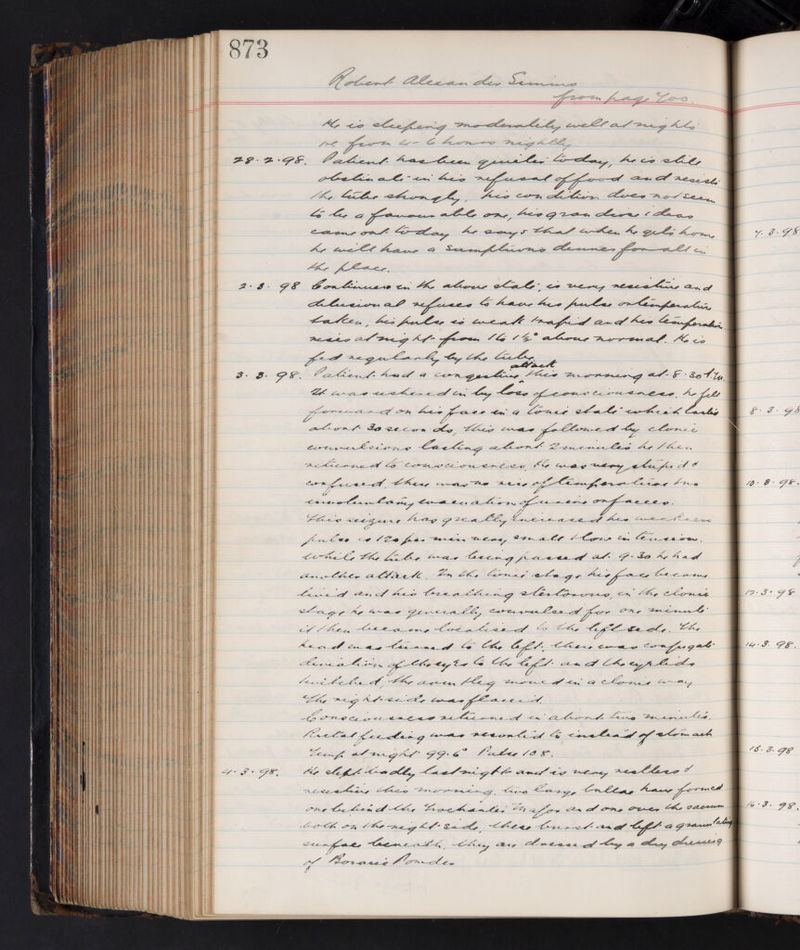 873
Robert Alexander Simms
from page 700.
He is sleeping moderately well at nights
ie from 4-6 hours nightly
28.2.98. Patient has been quieter today, he is still
obstinate in his refusal of food and resists
the tube strongly, his condition does not seem
to be a favourable one, his grandiose ideas
came out today he says that when he gets home
he will have a sumptuous dinner for all in
the place.
2.3.98 Continues in the above state, is very resistive and
delusional refuses to have his pulse or temperature
taken, his pulse is weak & rapid and his temperature
rises at night from 1 to 1½° above normal. He is
fed regularly by the tube.
3.3.98. Patient had a congestive attack this morning at 8.30 A.M.
It was ushered in by loss of consciousness, he fell
forward on his face in a tonic state which lasted
about 30 seconds, this was followed by clonic
convulsions lasting about 2 minutes he then
returned to consciousness, he was very stupid &
confused, there was no rise of temperature & no
involuntary evacuation of urine or faeces.
This seizure has greatly increased his weakness
pulse is 120 per min very small & low in tension.
While the tube was being passed at 9.30 he had
another attack. In the tonic stage his face became
livid and his breathing stertorous, in the clonic
stage he was generally convulsed for one minute
it then became localised to the left side. The
head was turned to the left, there was conjugate
deviation of the eyes to the left and the eyelids
twitched, the arm & leg moved in a clonic way
The right side was flaccid.
Consciousness returned in about two minutes.
Rectal feeding was resorted to instead of stomach
Temp at night 99.6° Pulse 108.
4.3.98. He slept badly last night and is very restless &
resistive this morning, two large bullae have formed
one behind the trochanter major and one over the sacrum
both on the right side, these burst and left a granulating
surface beneath, they are dressed by a dry dressing
of Boracic Powder
7.3.98
8.3.98
10.3.98.
12.3.98
14.3.98.
15.3.98
16.3.98.